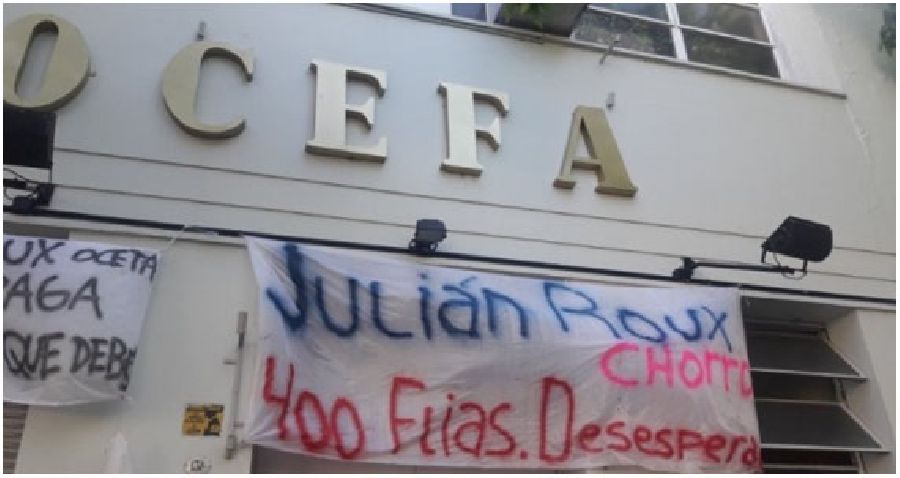 OCEFA
UX OCEFA
PAGA
QUE DEBE
JULIán ROUX
CHORRO
400 Flias. Desespera